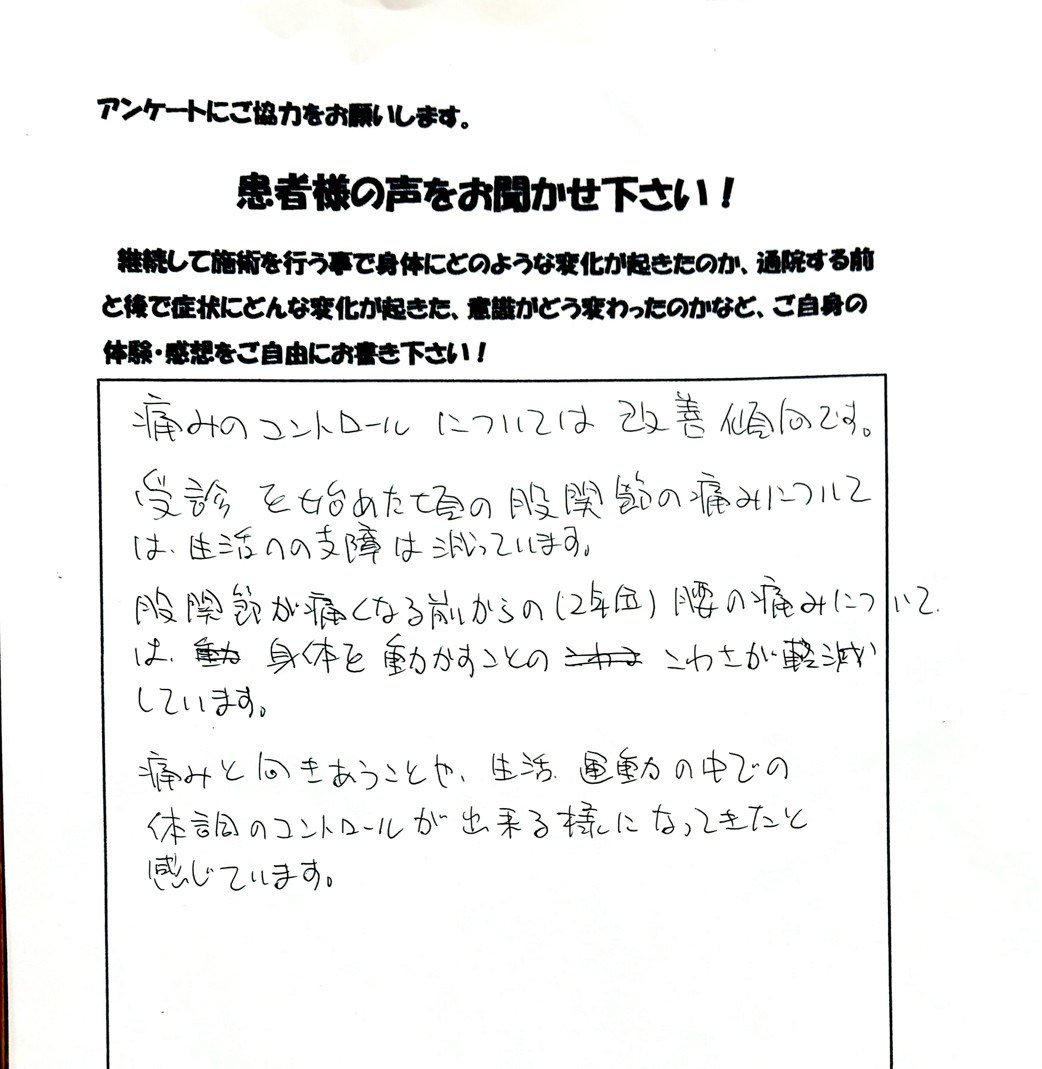 アンケートにご協力をお願いします。
患者様の声をお聞かせ下さい！
継続して施術を行う事で身体にどのような変化が起きたのか、通院する前
と後で症状にどんな変化が起きた、意識がどう変わったのかなど、ご自身の
体験・感想をご自由にお書き下さい！
痛みのコントロールについては改善傾向です。
受診を始めた頃の股関節の痛みについて
は、生活への支障は減っています。
股関節が痛くなる前からの(2年位)腰の痛みについて
は、動 身体を動かすことの こわさが軽減
しています。
痛みと向きあうことや、生活、運動の中での
体調のコントロールが出来る様になってきたと
感じています。